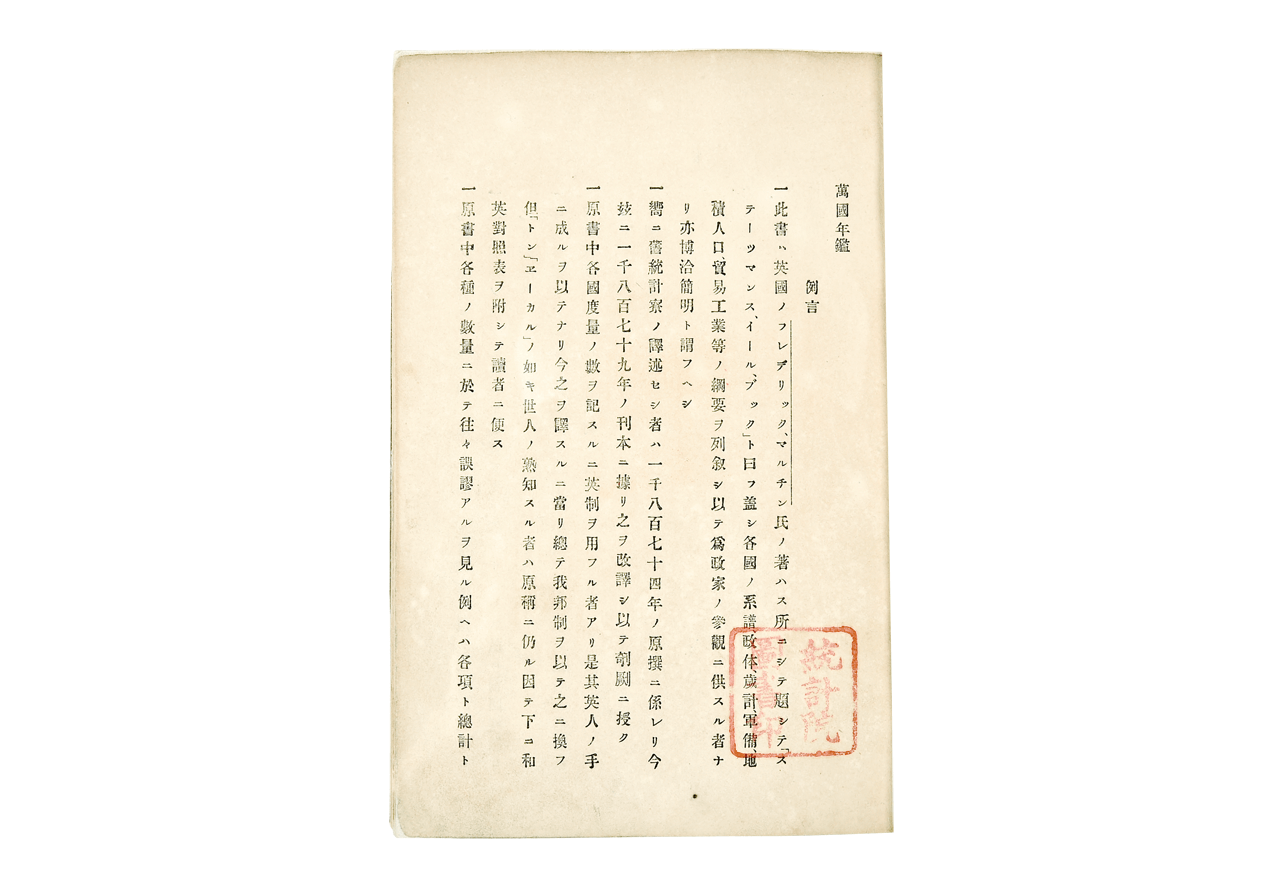 萬國年鑑
例言
一此書ハ英國ノフレデリック、マルチン氏ノ著ハス所ニシテ題シテ「ス
テーツマンス、イール、ブック」ト曰フ蓋シ各國ノ系譜、政体、歳計、軍備、地
積人口、貿易工業等ノ綱要ヲ列敘シ以テ爲政家ノ參觀ニ供スル者ナ
リ亦博洽簡明ト謂フヘシ
一嚮ニ舊統計寮ノ譯述セシ者ハ一千八百七十四年ノ原撰ニ係レリ今
玆ニ一千八百七十九年ノ刊本ニ據リ之ヲ改譯シ以テ剞劂ニ授ク
一原書中各國度量ノ數ヲ記スルニ英制ヲ用フル者アリ是其英人ノ手
ニ成ルヲ以テナリ今之ヲ譯スルニ當リ總テ我邦制ヲ以テ之ニ換フ
但「トン」「ヱーカル」ノ如キ世人ノ熟知スル者ハ原稱ニ仍ル因テ下ニ和
英對照表ヲ附シテ讀者ニ便ス
一原書中各種ノ數量ニ於テ往々誤謬アルヲ見ル例ヘハ各項ト總計ト
統計院
圖書印